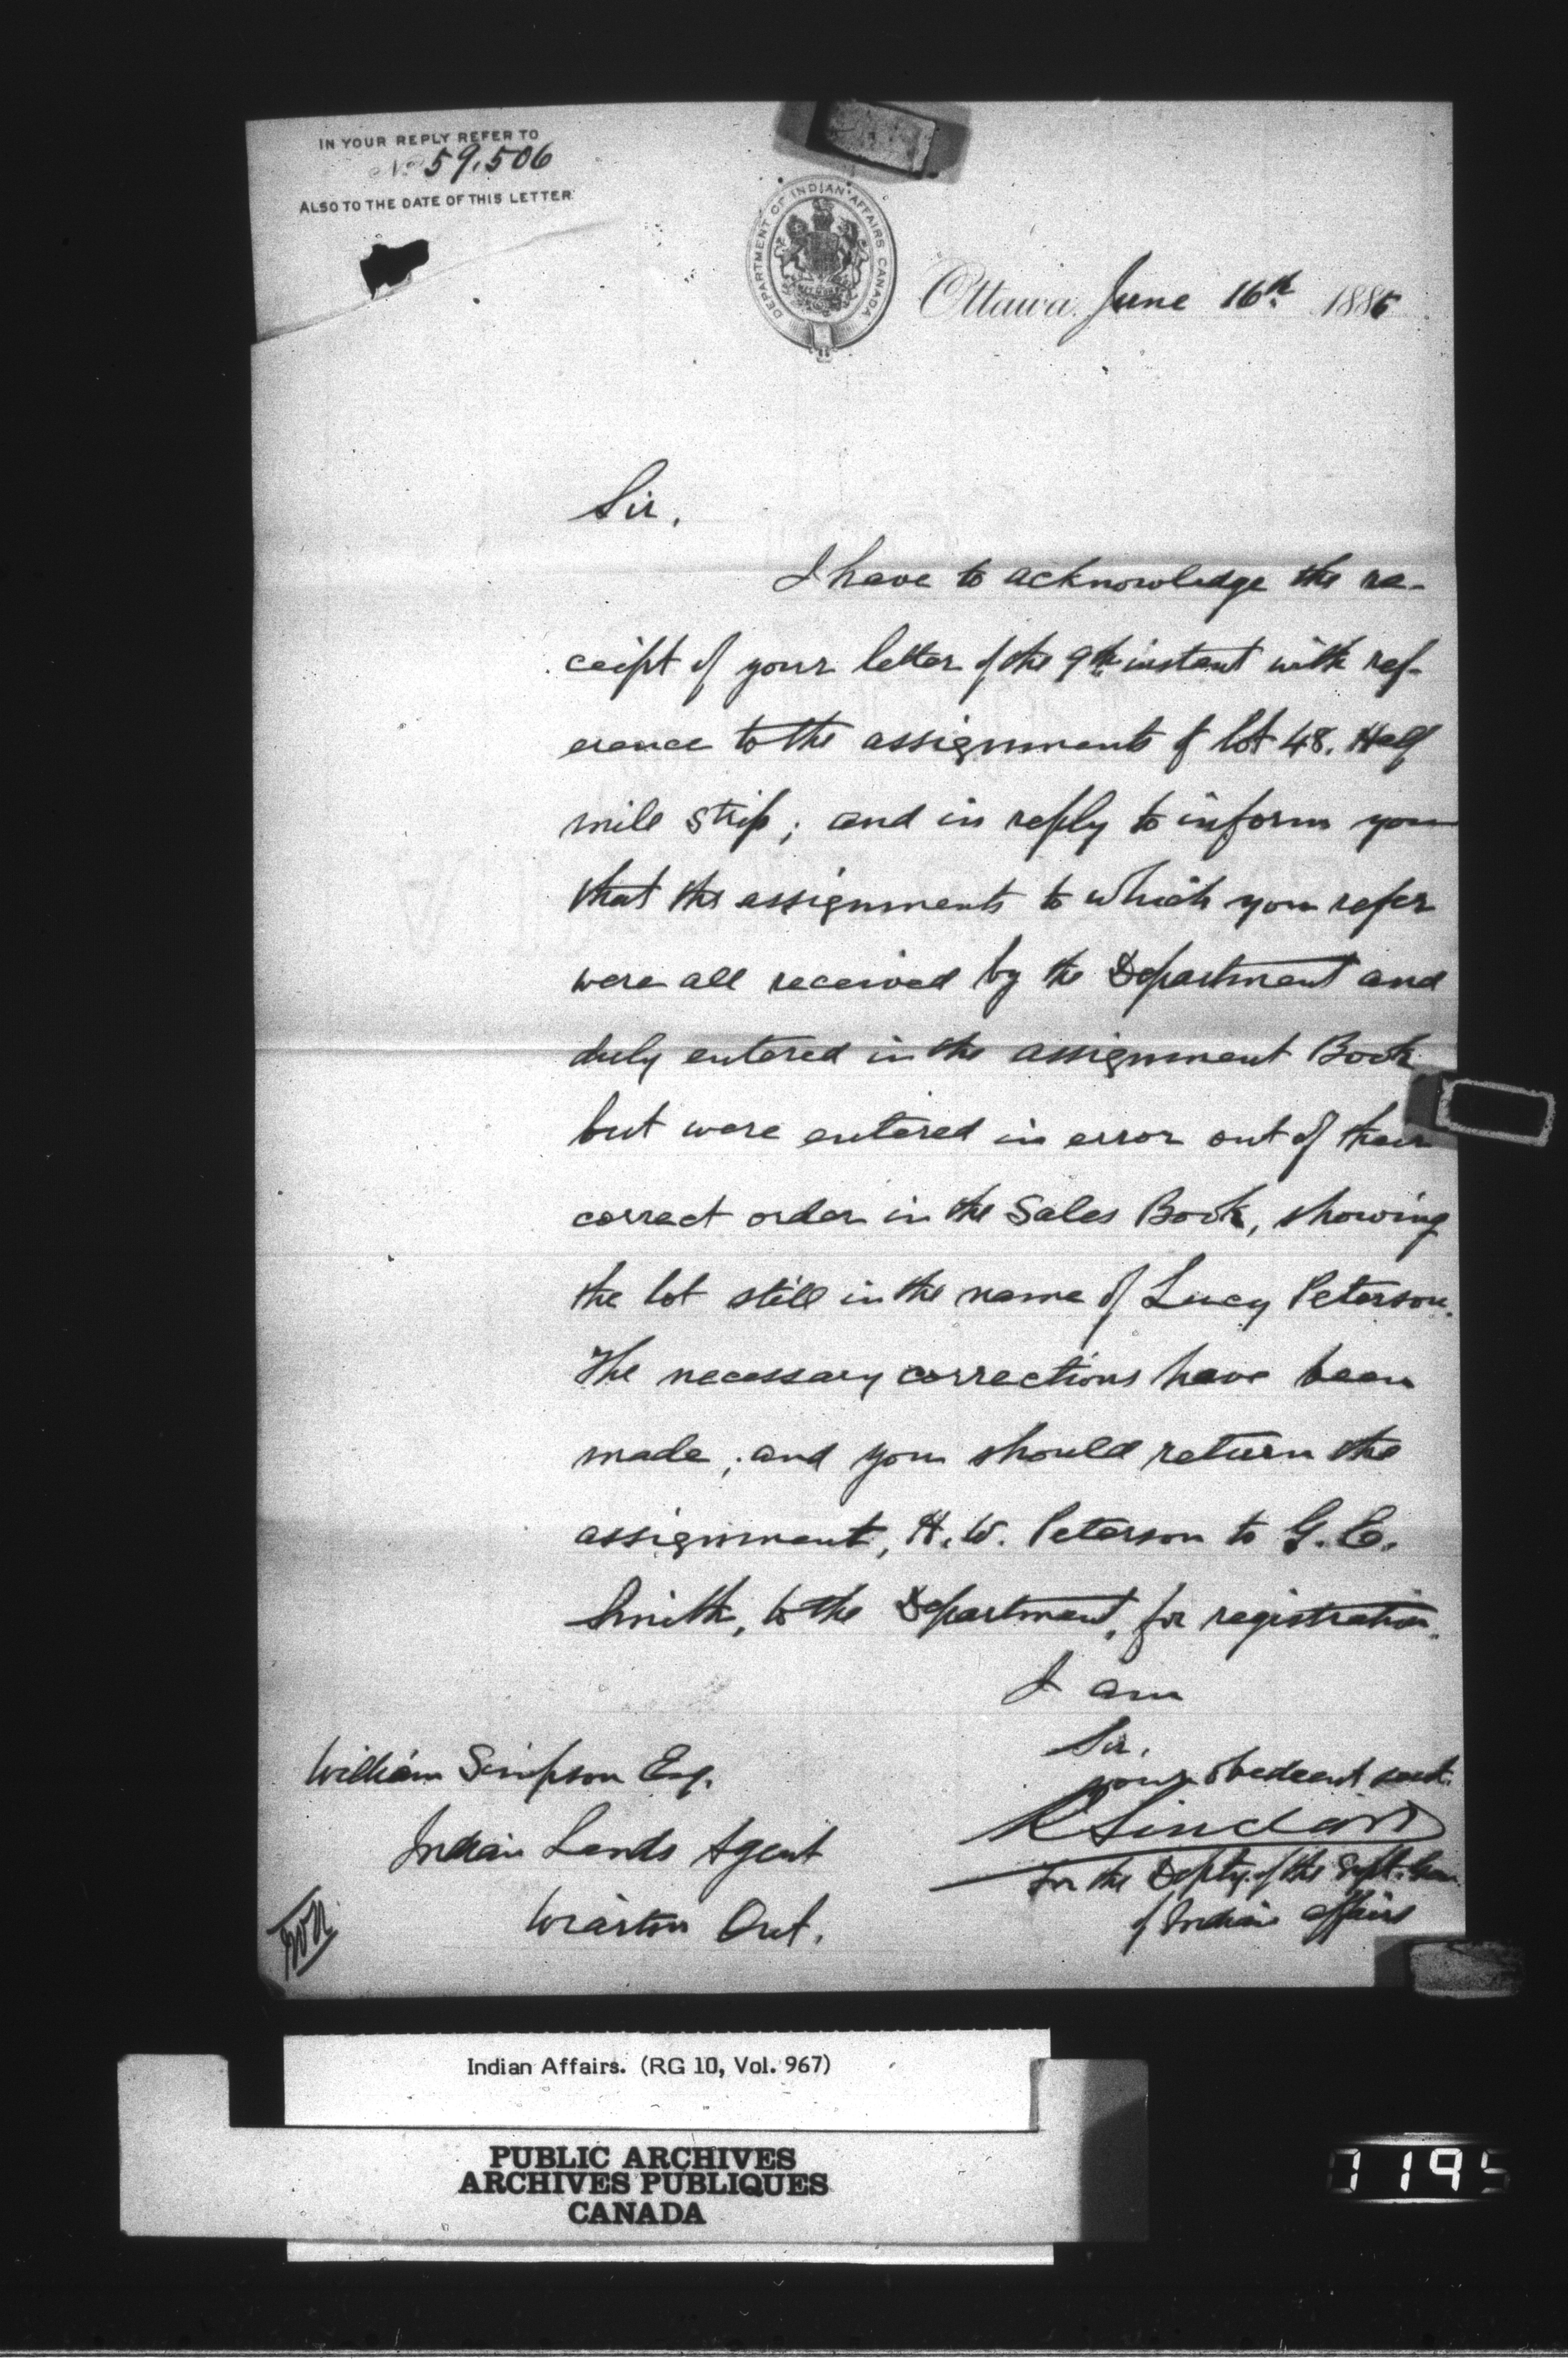 IN YOUR REPLY REFER TO
No 59,506
ALSO TO THE DATE OF THIS LETTER
DEPARTMENT OF INDIAN AFFAIRS CANADA
Ottawa, June 16th 1885
Sir,
I have to acknowledge the re-
ceipt of your letter of the 9th instant with ref-
erence to the assignments of lot 48. Half
mile strip; and in reply to inform you
that the assignments to which you refer
were all received by the Department and
duly entered in the assignment Book
but were entered in error out of their
correct order in the Sales Book, showing
the lot still in the name of Lucy Peterson.
The necessary corrections have been
made; and you should return the
assignment, H. W. Peterson to G. E.
Smith, to the Department, for registration.
I am
Sir,
your obedient servt.
R Sinclair
For the Depty. of the Supt. Gen.
of Indian affairs
William Simpson Esq.
Indian Lands Agent
Wiarton Ont.
Indian Affairs. (RG 10, Vol. 967)
PUBLIC ARCHIVES
ARCHIVES PUBLIQUES
CANADA
1195